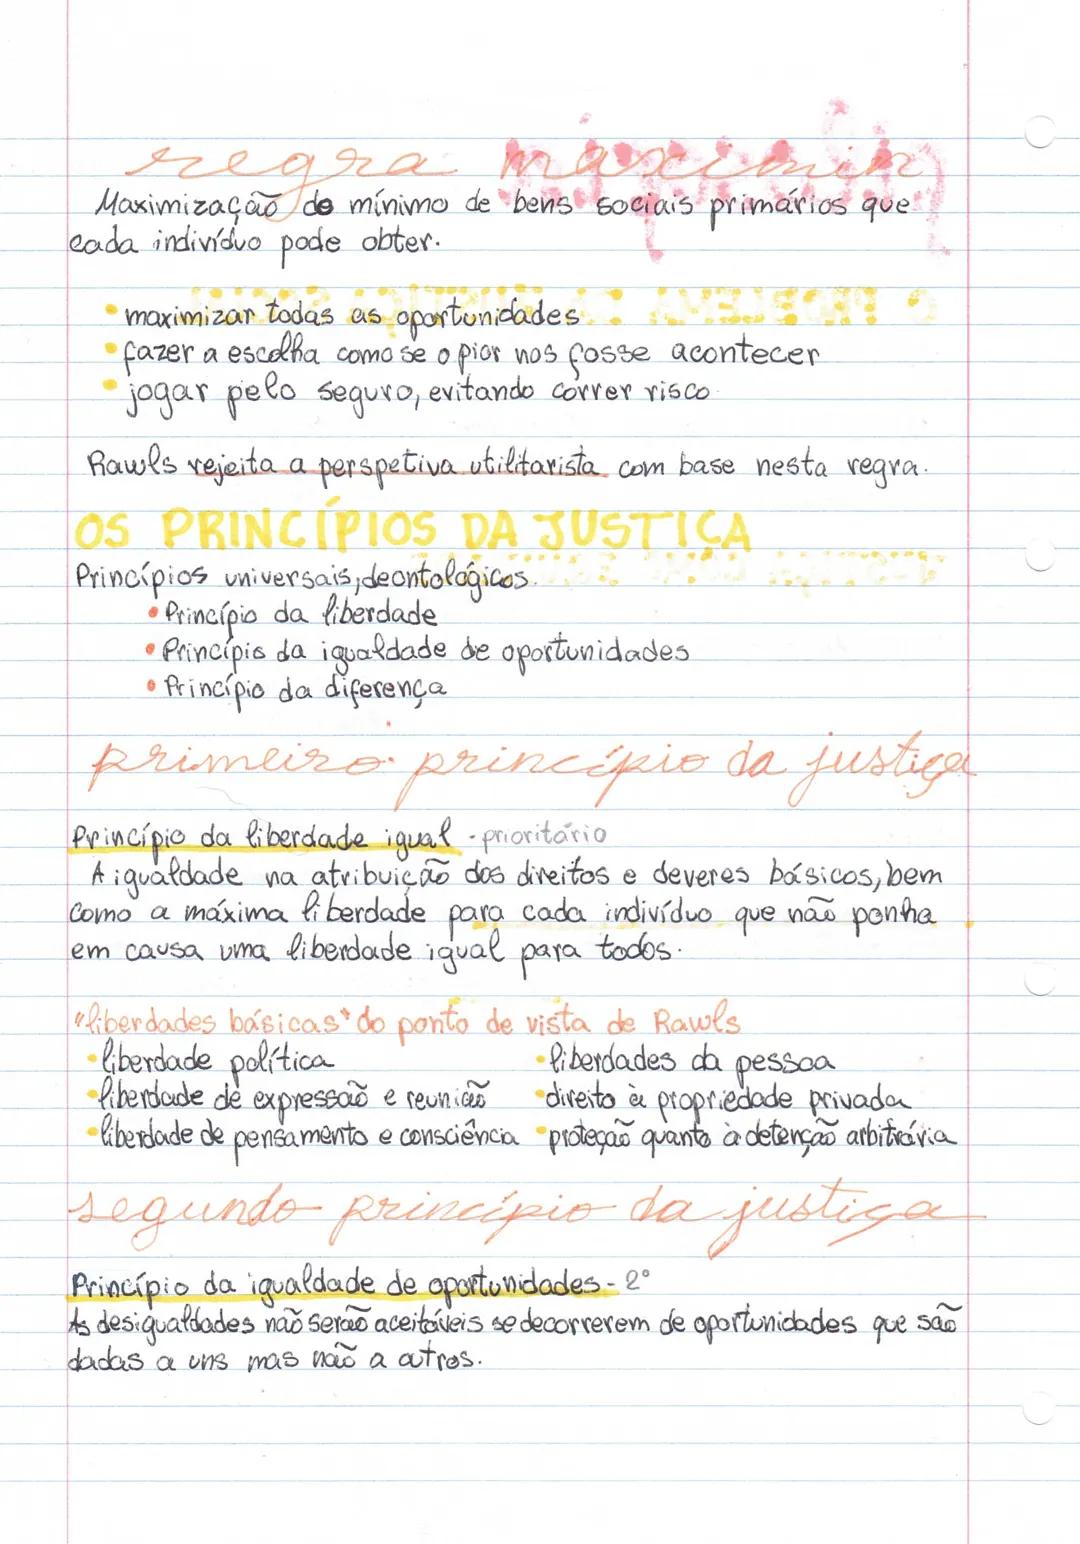 regra maximin
Maximização do mínimo de bens sociais primários que
cada indivíduo pode obter.
• maximizar todas as oportunidades
• fazer a escolha como se o pior nos fosse acontecer
• jogar pelo seguro, evitando correr risco.
Rawls rejeita a perspetiva utilitarista com base nesta regra.
OS PRINCÍPIOS DA JUSTIÇA
Princípios universais, deontológicos.
• Princípio da liberdade
• Princípio da igualdade de oportunidades
• Princípio da diferença
primeiro princípio da justiça
Princípio da liberdade igual - prioritário
A igualdade na atribuição dos direitos e deveres básicos, bem
como a máxima liberdade para cada indivíduo que não ponha
em causa uma liberdade igual para todos.
"liberdades básicas" do ponto de vista de Rawls
• liberdade política • liberdades da pessoa
• liberdade de expressão e reunião • direito à propriedade privada
• liberdade de pensamento e consciência • proteção quanto à detenção arbitrária
segundo princípio da justiça
Princípio da igualdade de oportunidades - 2º
As desigualdades não serão aceitáveis se decorrerem de oportunidades que são
dadas a uns mas não a outros.